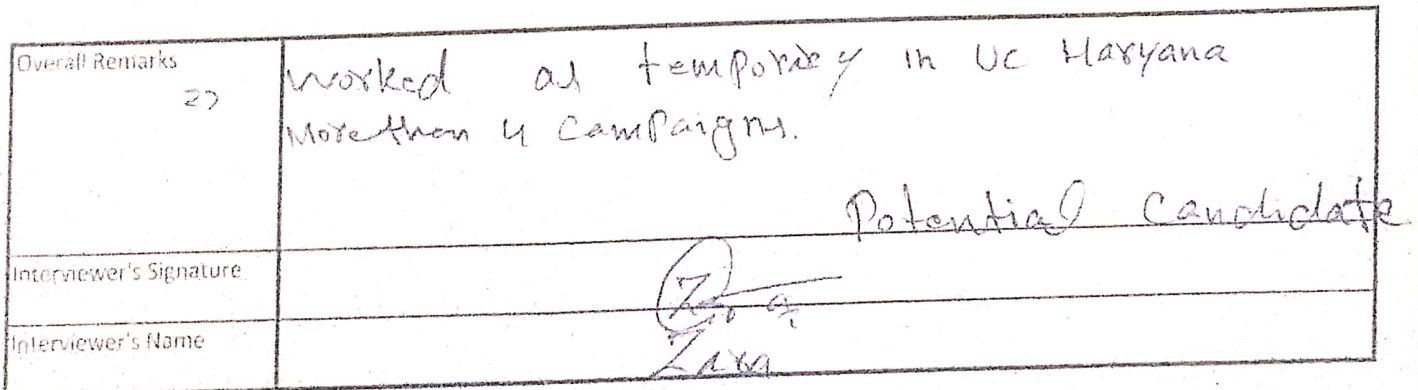 Overall Remarks
27
Worked as temporary in UC Haryana
More than 4 Campaigns.
Potential Candidate
Interviewer's Signature
Interviewer's Name
Zara